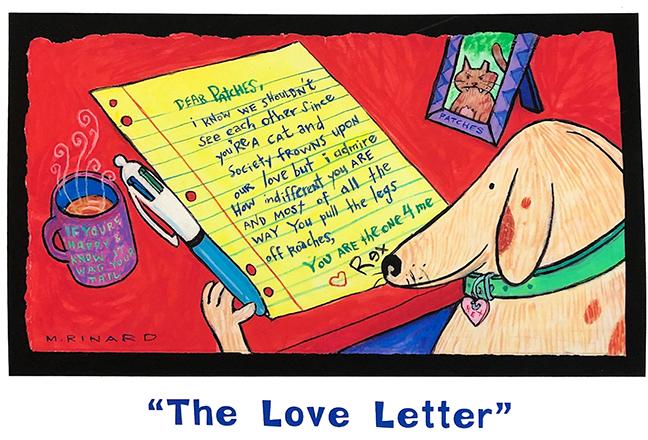 DEAR PATCHES,
i KNOW WE SHOULDN'T
SEE EACH OTHER SINCE
YOU'RE A CAT AND
SOCIETY FROWNS UPON
OUR LOVE but i admire
How indifferent you ARE
AND MOST of All the
WAY You pull the legs
off Roaches,
You ARE the one 4 me
Rox
PATCHES
IF YOU'RE
HAPPY &
KNOW IT
WAG YOUR
TAIL
M. RINARD
“The Love Letter”